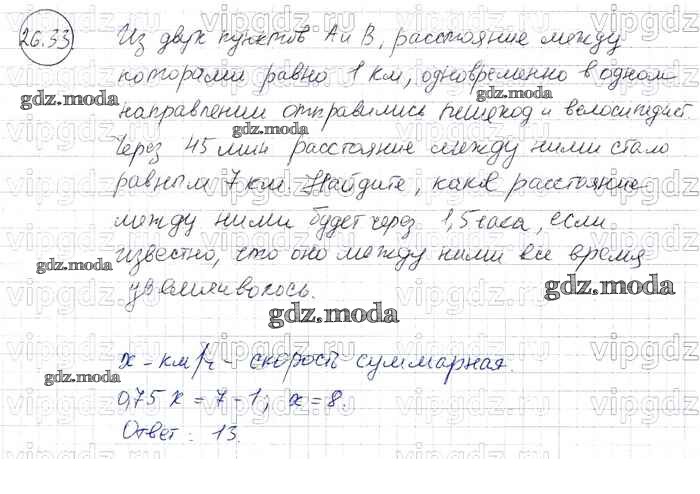 26.33. Из двух пунктов А и В, расстояние между
которами равно 1 км, одновременно в одном
gdz.moda gdz.moda
направлении отправились пешеход и велосипедист.
gdz.moda gdz.moda
Через 45 мин расстояние между ними стало
равным 7 км. Найдите, какое расстояние
между ними будет через 1,5 часа, если
известно, что оно между ними все время
gdz.moda
увеличивалось.
gdz.moda gdz.moda
x - км/ч - скорость суммарная.
gdz.moda
0,75 x = 7 - 1; x = 8.
Ответ: 13.
vipgdz